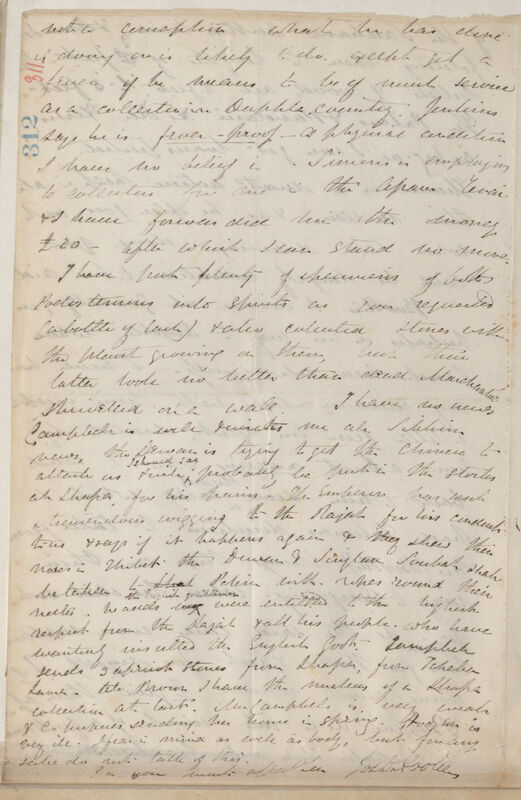 312
with a conception what he has done
is doing or is likely to do except get a
fever if he means to be of much service
as a collector in country Jenkins
says he is fever-proof - a physical condition
I have no belief in. Simons is employing
collectors for me the Assam
& I have forwarded him the money
£20 - after which I can stand no more.
I have put plenty of specimens of both
Podostemons into spirits as you requested
(a bottle of each) & also collected stones with
the plant growing on them, but these
latter look no better than dead Marchantia
shrivelled on a wall. I have no news
Campbell is well & writes me Sikkim
news, the Dewan is trying to get the Chinese to
attack us & will I should say probably be put in the stocks
at Lhapa for his pains. The Emperor has sent
a tremendous wigging to the Rajah for his conduct
to us & says if it happens again & they shew their
noses in Thibet the Dewan & Singtam Soubah shall
be taken to Pekin with ropes round their
necks. He adds the English gentlemen were entitled to the highest
respect from the Rajah & all his people who have
wantonly insulted the English Govt. Campbell
sends 3 apricot stones from Lhapa, from Tchebu
Lama. Like Brown I have the nucleus of a Lhapa
collection at last. Mrs Campbell is very weak
& C. proposes sending her home in spring. Hodgson is
very ill. I fear in mind as well as body, but for any
sake do not talk of this.
Ever your most affect son Jos D Hooker